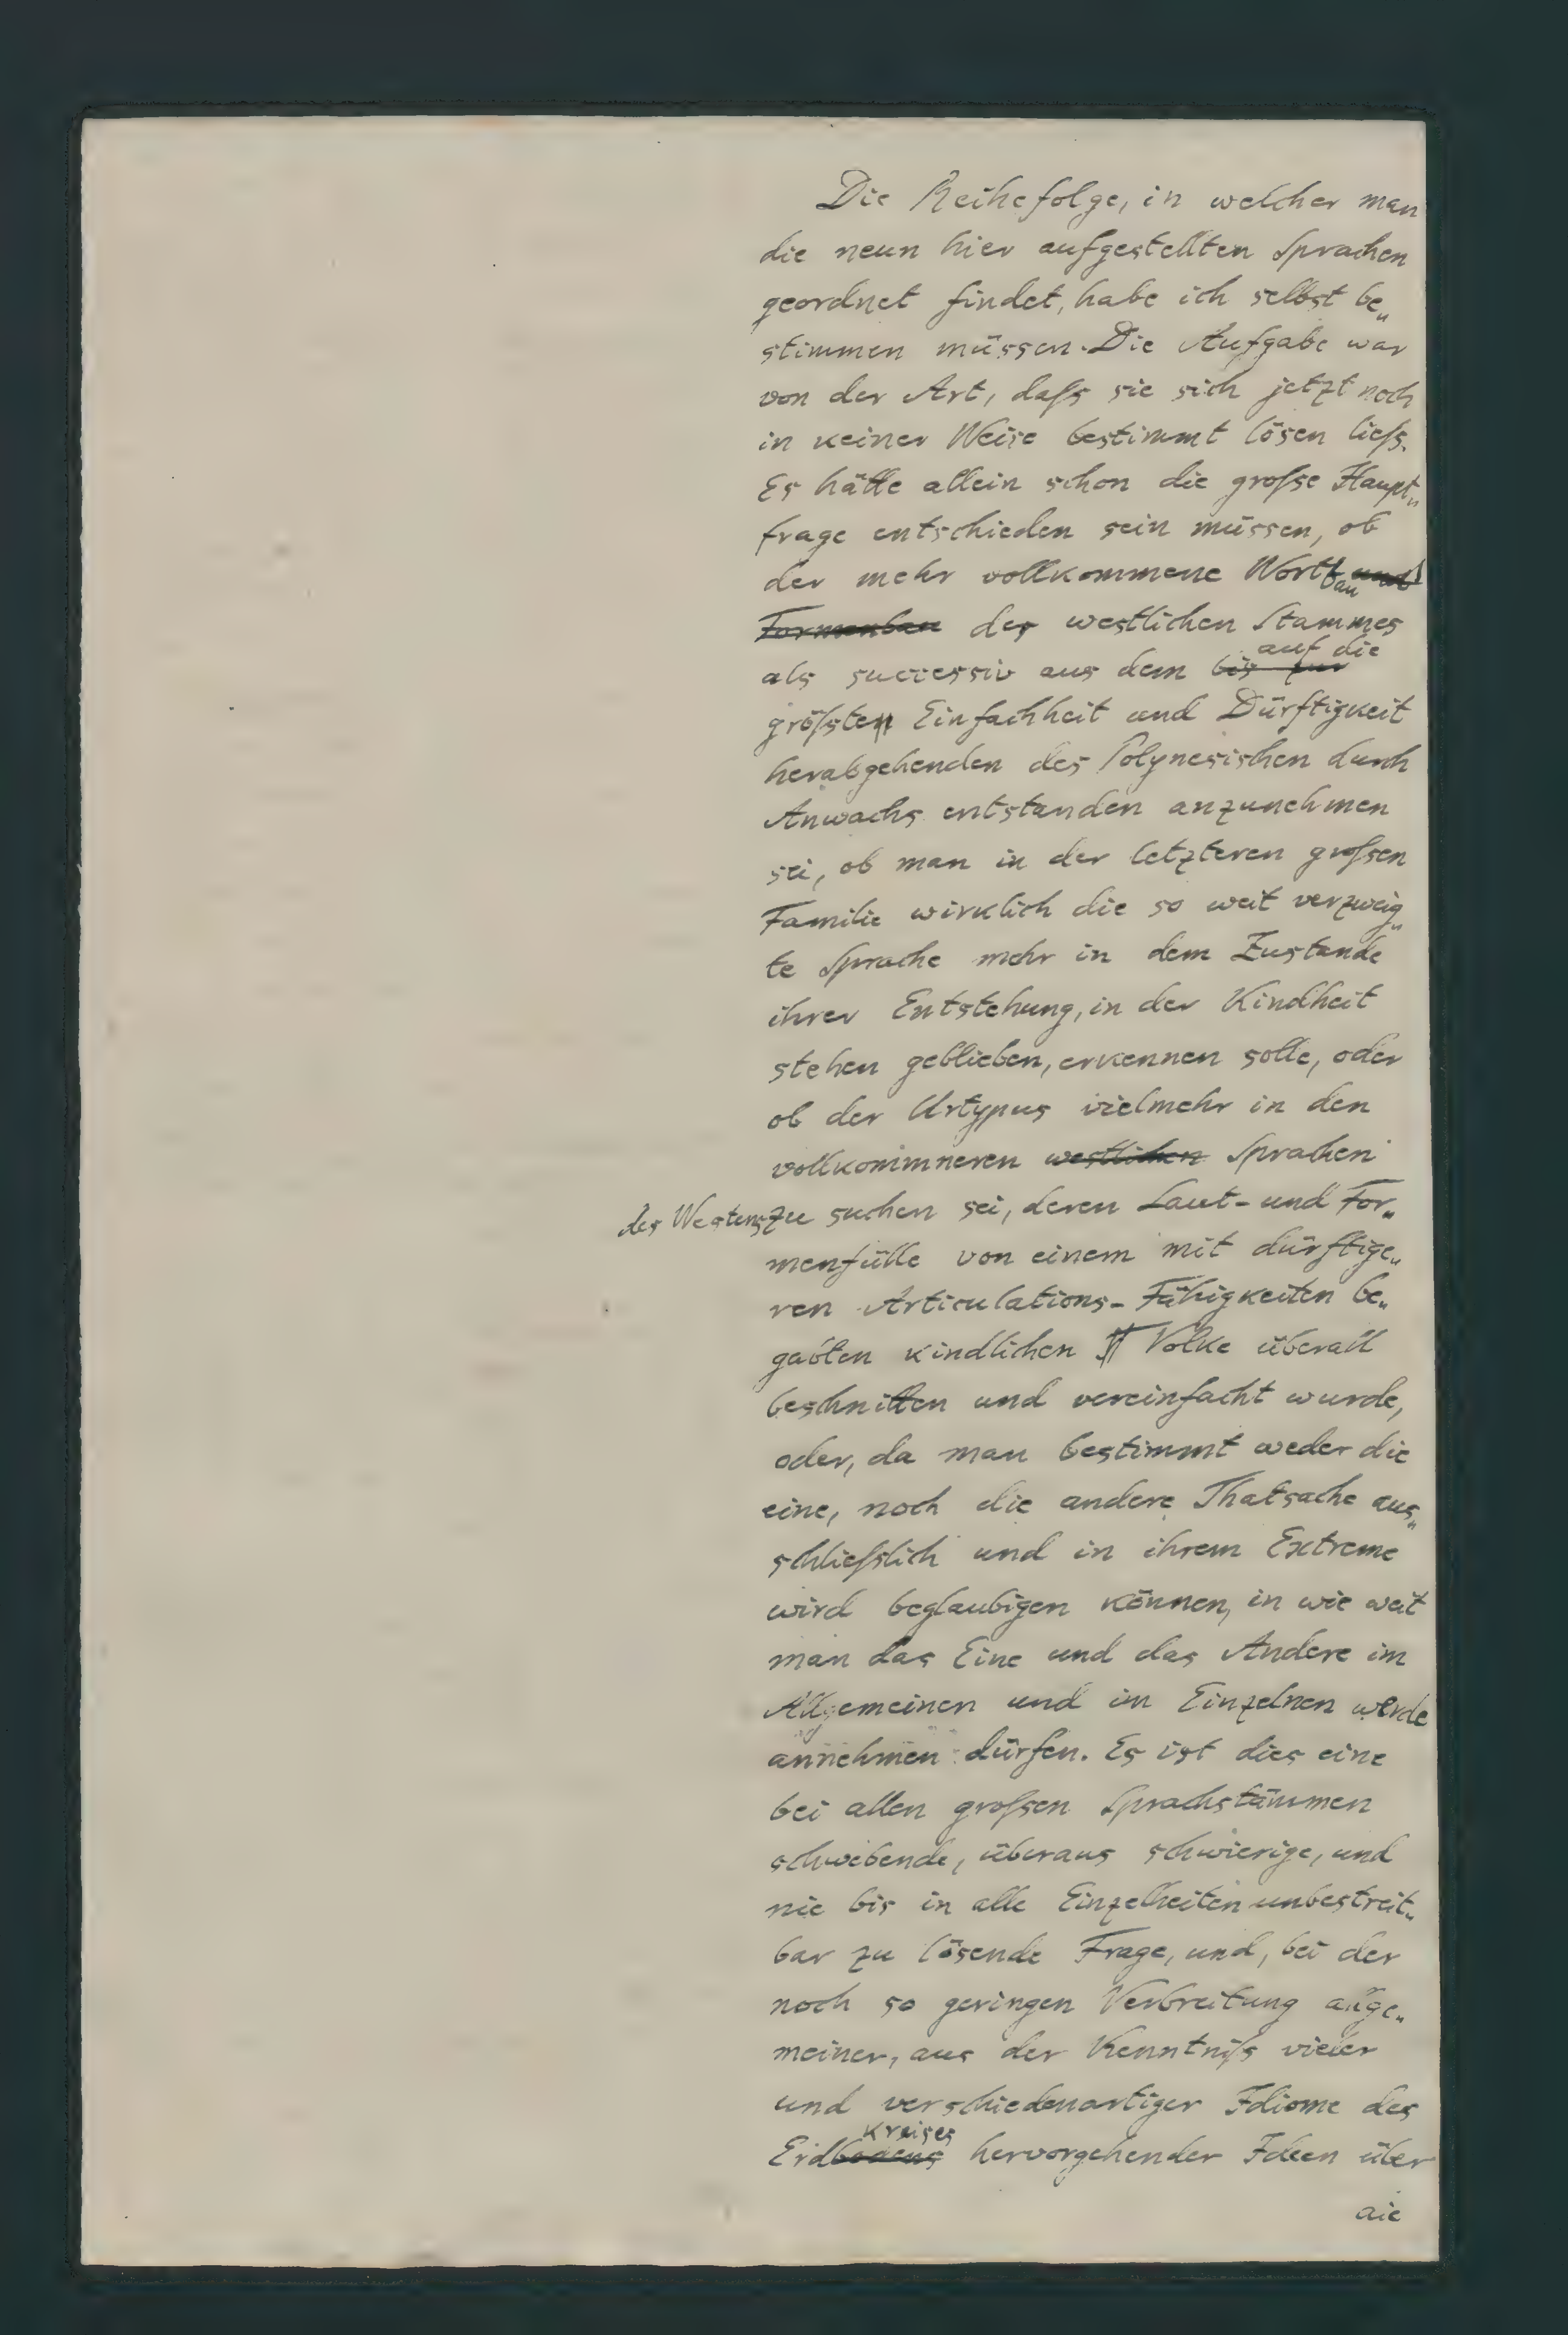 Die Reihefolge, in welcher man
die neun hier aufgestellten Sprachen
geordnet findet, habe ich selbst be„
stimmen müssen. Die Aufgabe war
von der Art, daſs sie sich jetzt noch
in keiner Weise bestimmt lösen lieſs.
Es hätte allein schon die groſse Haupt„
frage entschieden sein müssen, ob
der mehr vollkommene Wortbau und
Formenbau des westlichen Stammes
auf die
als successiv aus dem bis zur
gröſsten Einfachheit und Dürftigkeit
herabgehenden des Polynesischen durch
Anwachs entstanden anzunehmen
sei, ob man in der letzteren groſsen
Familie wirklich die so weit verzweig„
te Sprache mehr in dem Zustande
ihrer Entstehung, in der Kindheit
stehen geblieben, erkennen solle, oder
ob der Urtypus vielmehr in den
vollkommneren westlichen Sprachen
des Westens zu suchen sei, deren Laut- und For„
menfülle von einem mit dürftige„
ren Articulations-Fähigkeiten be„
gabten kindlichen Volke überall
beschnitten und vereinfacht wurde,
oder, da man bestimmt weder die
eine, noch die andere Thatsache aus„
schlieſslich und in ihrem Extreme
wird beglaubigen können, in wie weit
man das Eine und das Andere im
Allgemeinen und im Einzelnen werde
annehmen dürfen. Es ist dies eine
bei allen groſsen Sprachstämmen
schwebende, überaus schwierige, und
nie bis in alle Einzelheiten unbestreit„
bar zu lösende Frage, und, bei der
noch so geringen Verbreitung allge„
meiner, aus der Kenntniſs vieler
und verschiedenartiger Idiome des
kreises
Erdbodens hervorgehender Ideen über
die